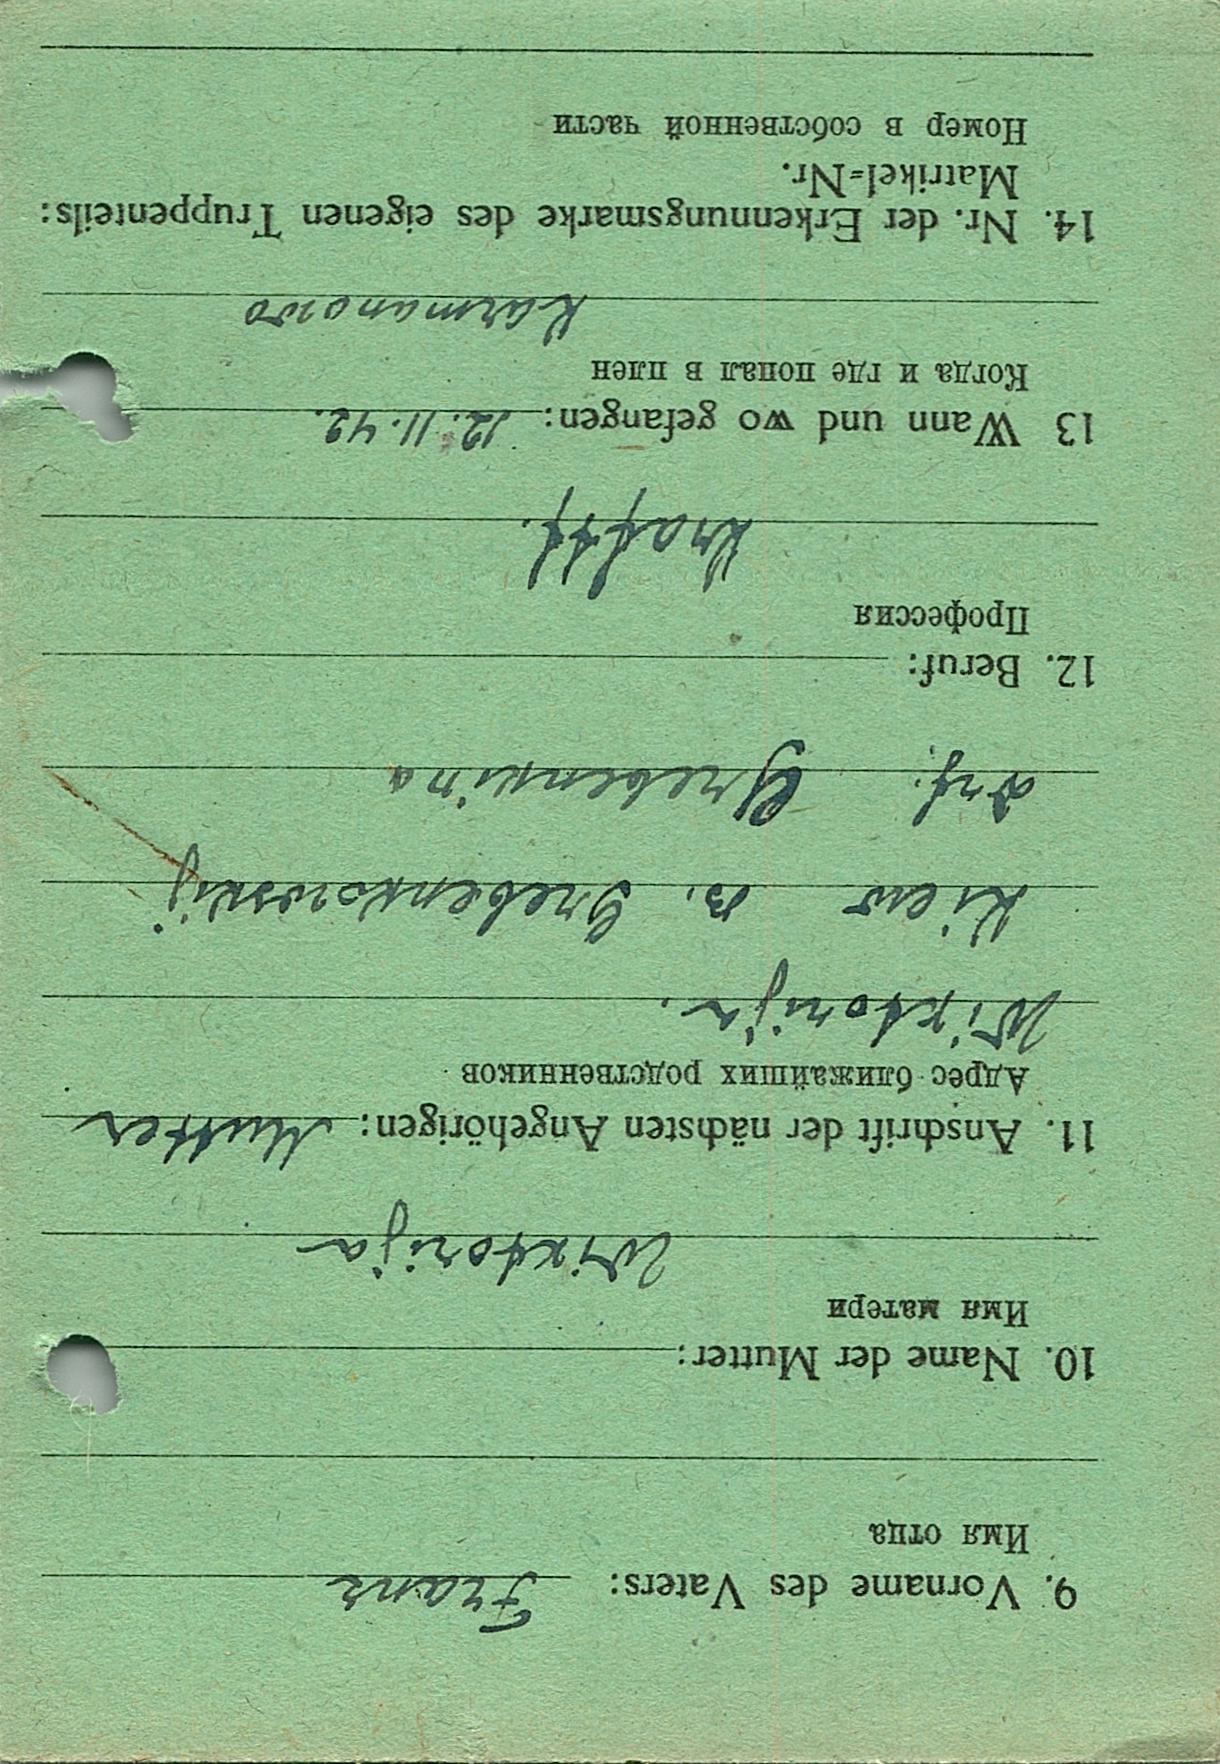 9. Vorname des Vaters: Franz
Имя отца
10. Name der Mutter:
Имя матери
Wiktorija
11. Anschrift der nächsten Angehörigen: Mutter
Адрес ближайших родственников
Wiktorija.
Kiew r. Grebenkowskij
Drf. Grebenkina
12. Beruf:
Профессия
Kraftf.
13 Wann und wo gefangen: 12.11.42.
Когда и где попал в плен
Karmanowo
14. Nr. der Erkennungsmarke des eigenen Truppenteils:
Matrikel=Nr.
Номер в собственной части